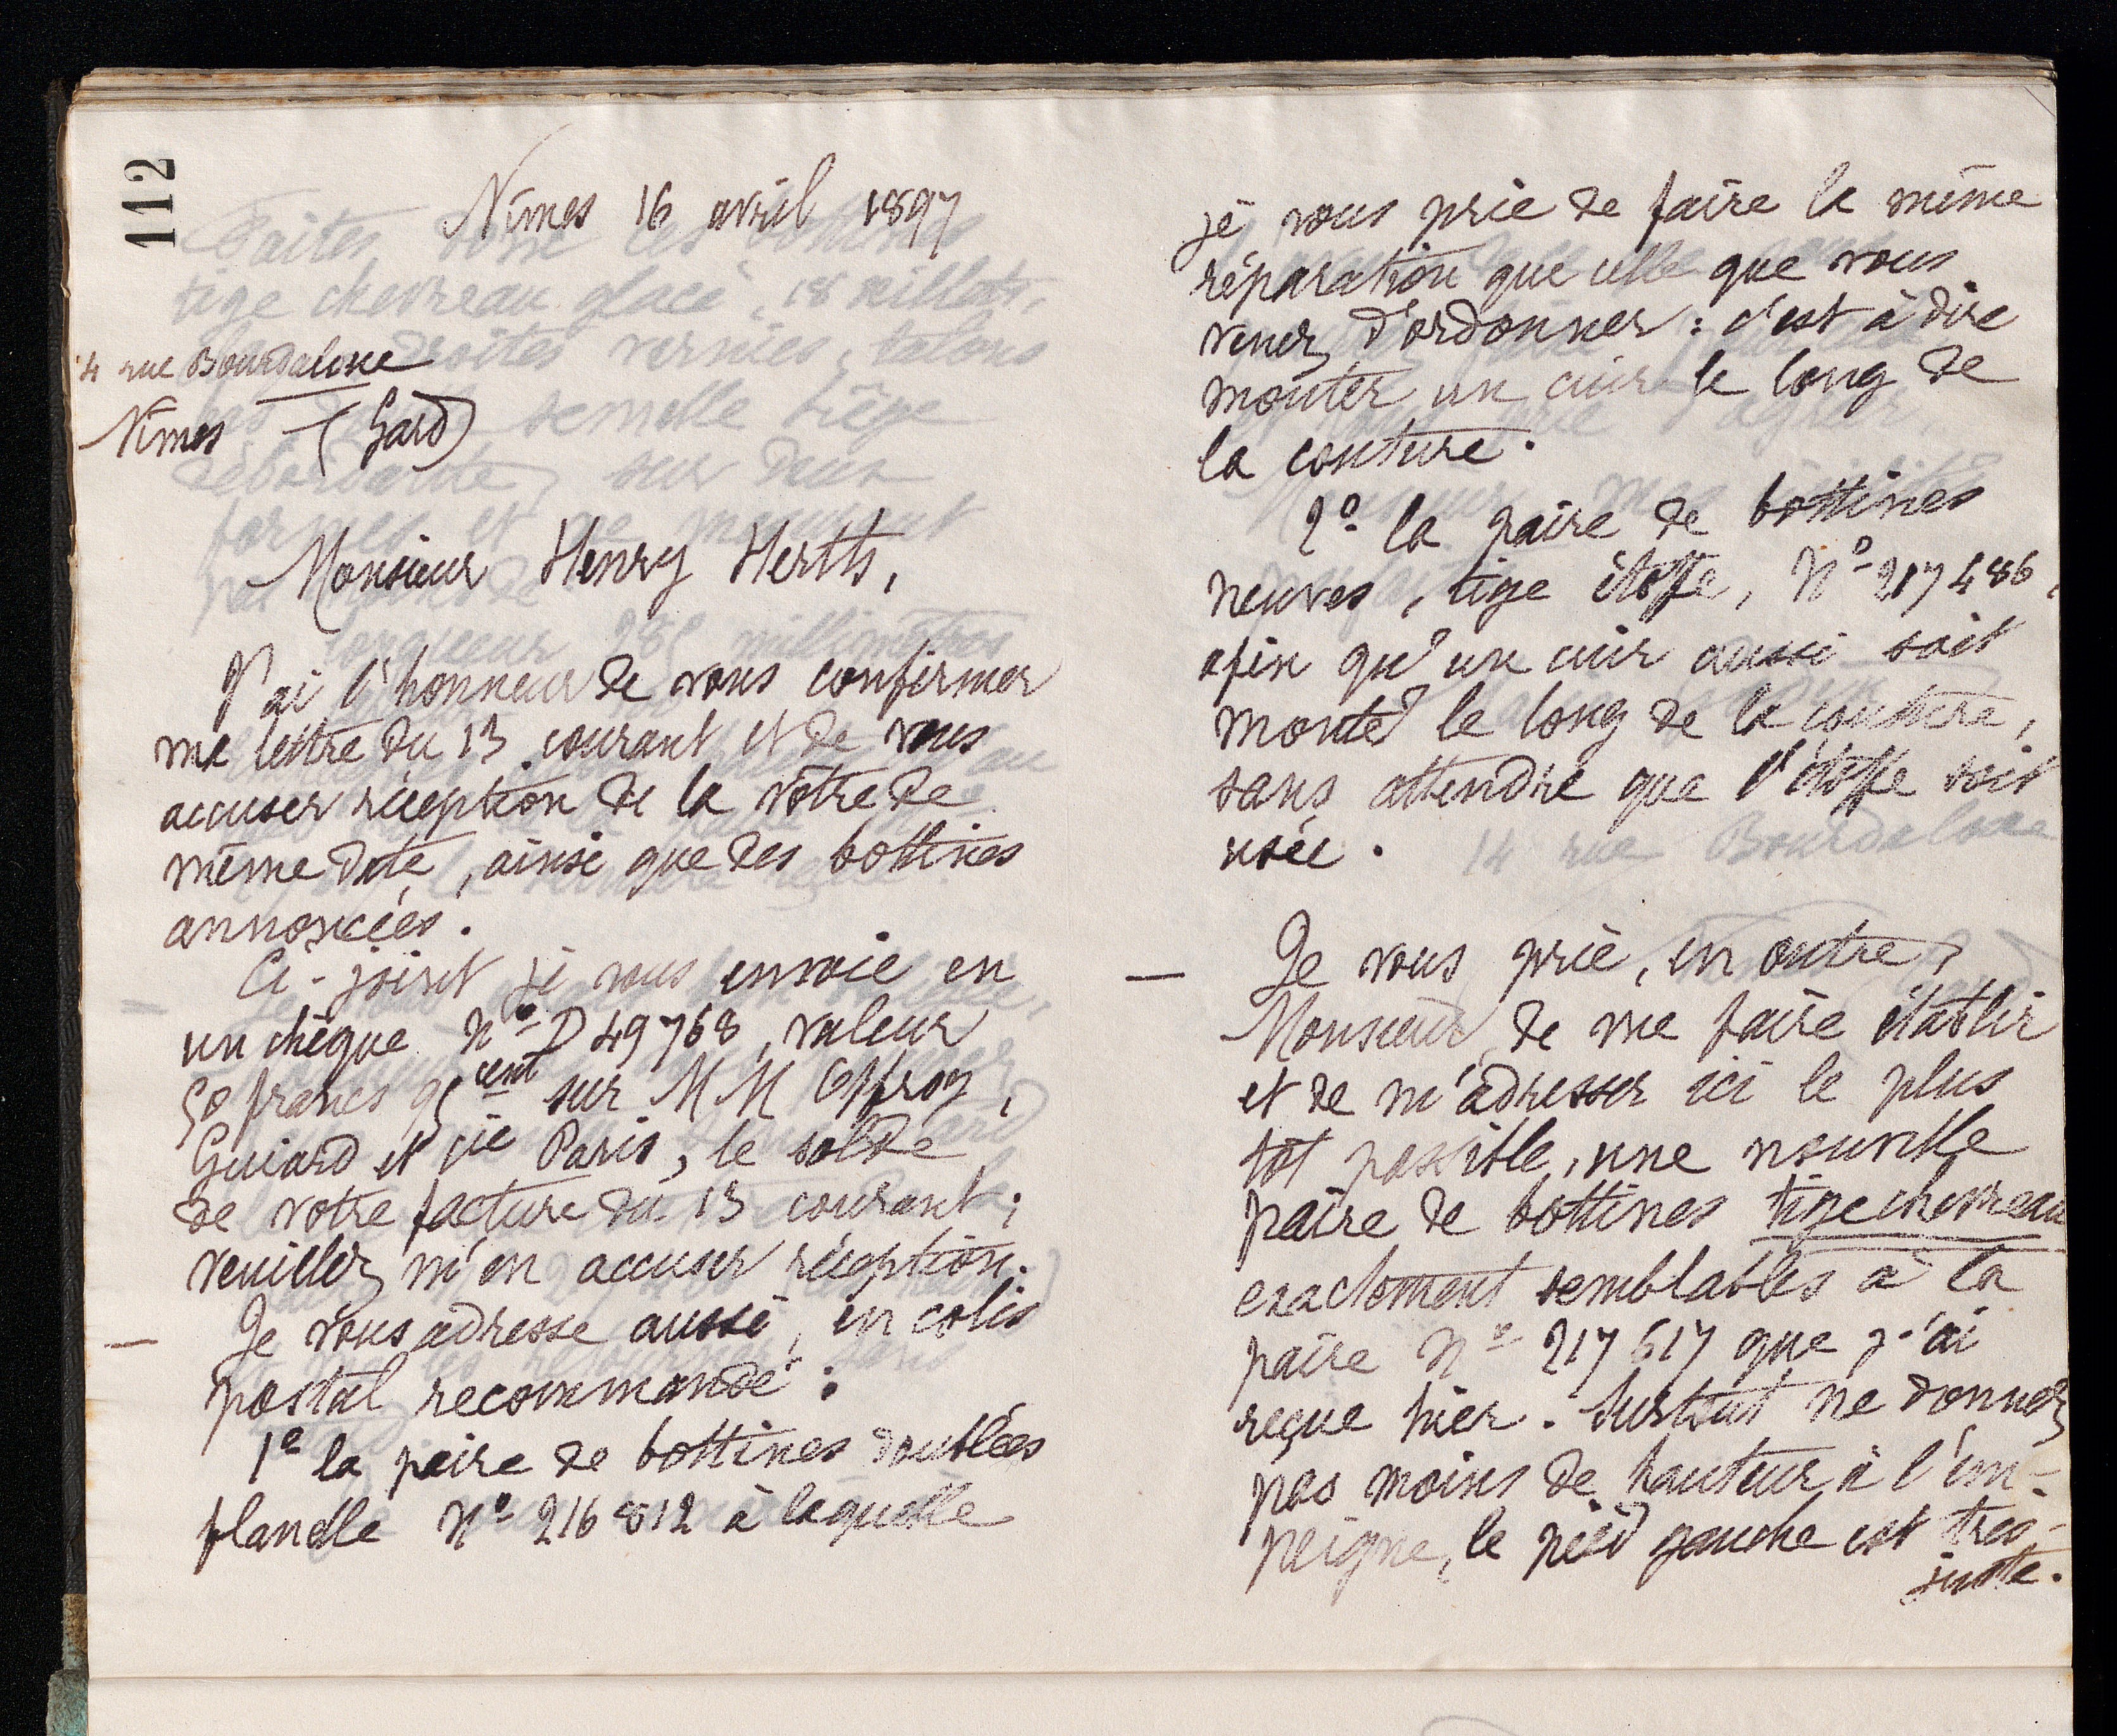 112
Nîmes 16 avril 1897
14 rue Bourdaloue
Nîmes (Gard)
Monsieur Henry Hertts,
J'ai l'honneur de vous confirmer
ma lettre du 13 courant et de vous
accuser réception de la vôtre de
même date, ainsi que des bottines
annoncées.
Ci-joint je vous envoie en
un chèque N° D 49768, valeur
50 francs 95 cent sur MM Offroy,
Guiard et Cie Paris, le solde
de votre facture du 13 courant;
veuillez m'en accuser réception.
— Je vous adresse aussi, en colis
postal recommandé:
1° la paire de bottines doublées
flanelle N° 216812 à laquelle
je vous prie de faire la même
réparation que celle que vous
venez d'ordonner: c'est à dire
monter un cuir le long de
la couture.
2° la paire de bottines
neuves, tige étoffe, N° 217486,
afin qu'un cuir aussi soit
monté le long de la couture,
sans attendre que l'étoffe soit
usée.
— Je vous prie, en outre,
Monsieur, de me faire établir
et de m'adresser ici le plus
tôt possible, une nouvelle
paire de bottines tige chevreau
exactement semblables à la
paire N° 217517 que j'ai
reçue hier. Surtout ne donnez
pas moins de hauteur à l'em-
peigne, le pied gauche est très-
juste.